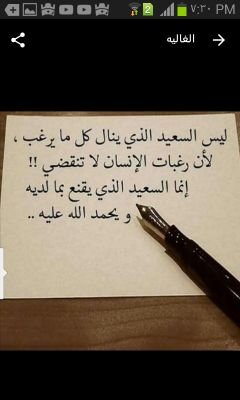 ٧:٣٠ PM
الغاليه
ليس السعيد الذي ينال كل ما يرغب ،
لأن رغبات الإنسان لا تنقضي !!
إنما السعيد الذي يقنع بما لديه
و يحمد الله عليه ..